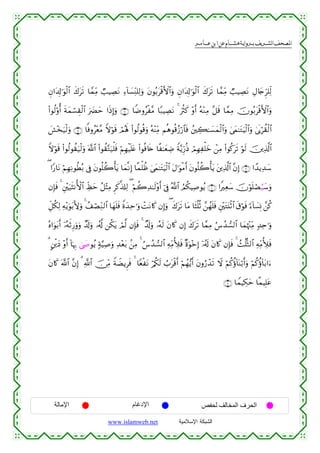 المصحف الشريف برواية هشام عن ابن عامر
لِّلرِّجَالِ نَصِيبٌ مِّمَّا تَرَكَ ٱلْوَٰلِدَانِ وَٱلْأَقْرَبُونَ وَلِلنِّسَآءِ نَصِيبٌ مِّمَّا تَرَكَ ٱلْوَٰلِدَانِ
وَٱلْأَقْرَبُونَ مِمَّا قَلَّ مِنْهُ أَوْ كَثُرَ ۚ نَصِيبًا مَّفْرُوضًا ۝ وَإِذَا حَضَرَ ٱلْقِسْمَةَ أُو۟لُوا۟
ٱلْقُرْبَىٰ وَٱلْيَتَٰمَىٰ وَٱلْمَسَٰكِينُ فَٱرْزُقُوهُم مِّنْهُ وَقُولُوا۟ لَهُمْ قَوْلًا مَّعْرُوفًا ۝ وَلْيَخْشَ
ٱلَّذِينَ لَوْ تَرَكُوا۟ مِنْ خَلْفِهِمْ ذُرِّيَّةً ضِعَٰفًا خَافُوا۟ عَلَيْهِمْ فَلْيَتَّقُوا۟ ٱللَّهَ وَلْيَقُولُوا۟ قَوْلًا
سَدِيدًا ۝ إِنَّ ٱلَّذِينَ يَأْكُلُونَ أَمْوَٰلَ ٱلْيَتَٰمَىٰ ظُلْمًا إِنَّمَا يَأْكُلُونَ فِى بُطُونِهِمْ نَارًا ۖ
وَسَيُصْلَوْنَ سَعِيرًا ۝ يُوصِيكُمُ ٱللَّهُ فِىٓ أَوْلَٰدِكُمْ ۖ لِلذَّكَرِ مِثْلُ حَظِّ ٱلْأُنثَيَيْنِ ۚ فَإِن
كُنَّ نِسَآءً فَوْقَ ٱثْنَتَيْنِ فَلَهُنَّ ثُلُثَا مَا تَرَكَ ۖ وَإِن كَانَتْ وَٰحِدَةً فَلَهَا ٱلنِّصْفُ ۚ وَلِأَبَوَيْهِ لِكُلِّ
وَٰحِدٍ مِّنْهُمَا ٱلسُّدُسُ مِمَّا تَرَكَ إِن كَانَ لَهُۥ وَلَدٌ ۚ فَإِن لَّمْ يَكُن لَّهُۥ وَلَدٌ وَوَرِثَهُۥٓ أَبَوَاهُ
فَلِأُمِّهِ ٱلثُّلُثُ ۚ فَإِن كَانَ لَهُۥٓ إِخْوَةٌ فَلِأُمِّهِ ٱلسُّدُسُ ۚ مِنۢ بَعْدِ وَصِيَّةٍ يُوصَىٰ بِهَآ أَوْ دَيْنٍ ۗ
ءَابَآؤُكُمْ وَأَبْنَآؤُكُمْ لَا تَدْرُونَ أَيُّهُمْ أَقْرَبُ لَكُمْ نَفْعًا ۚ فَرِيضَةً مِّنَ ٱللَّهِ ۗ إِنَّ ٱللَّهَ كَانَ
عَلِيمًا حَكِيمًا ۝
الحرف المخالف لحفص الإدغام الإمالة
الشبكة الإسلامية www.islamweb.net